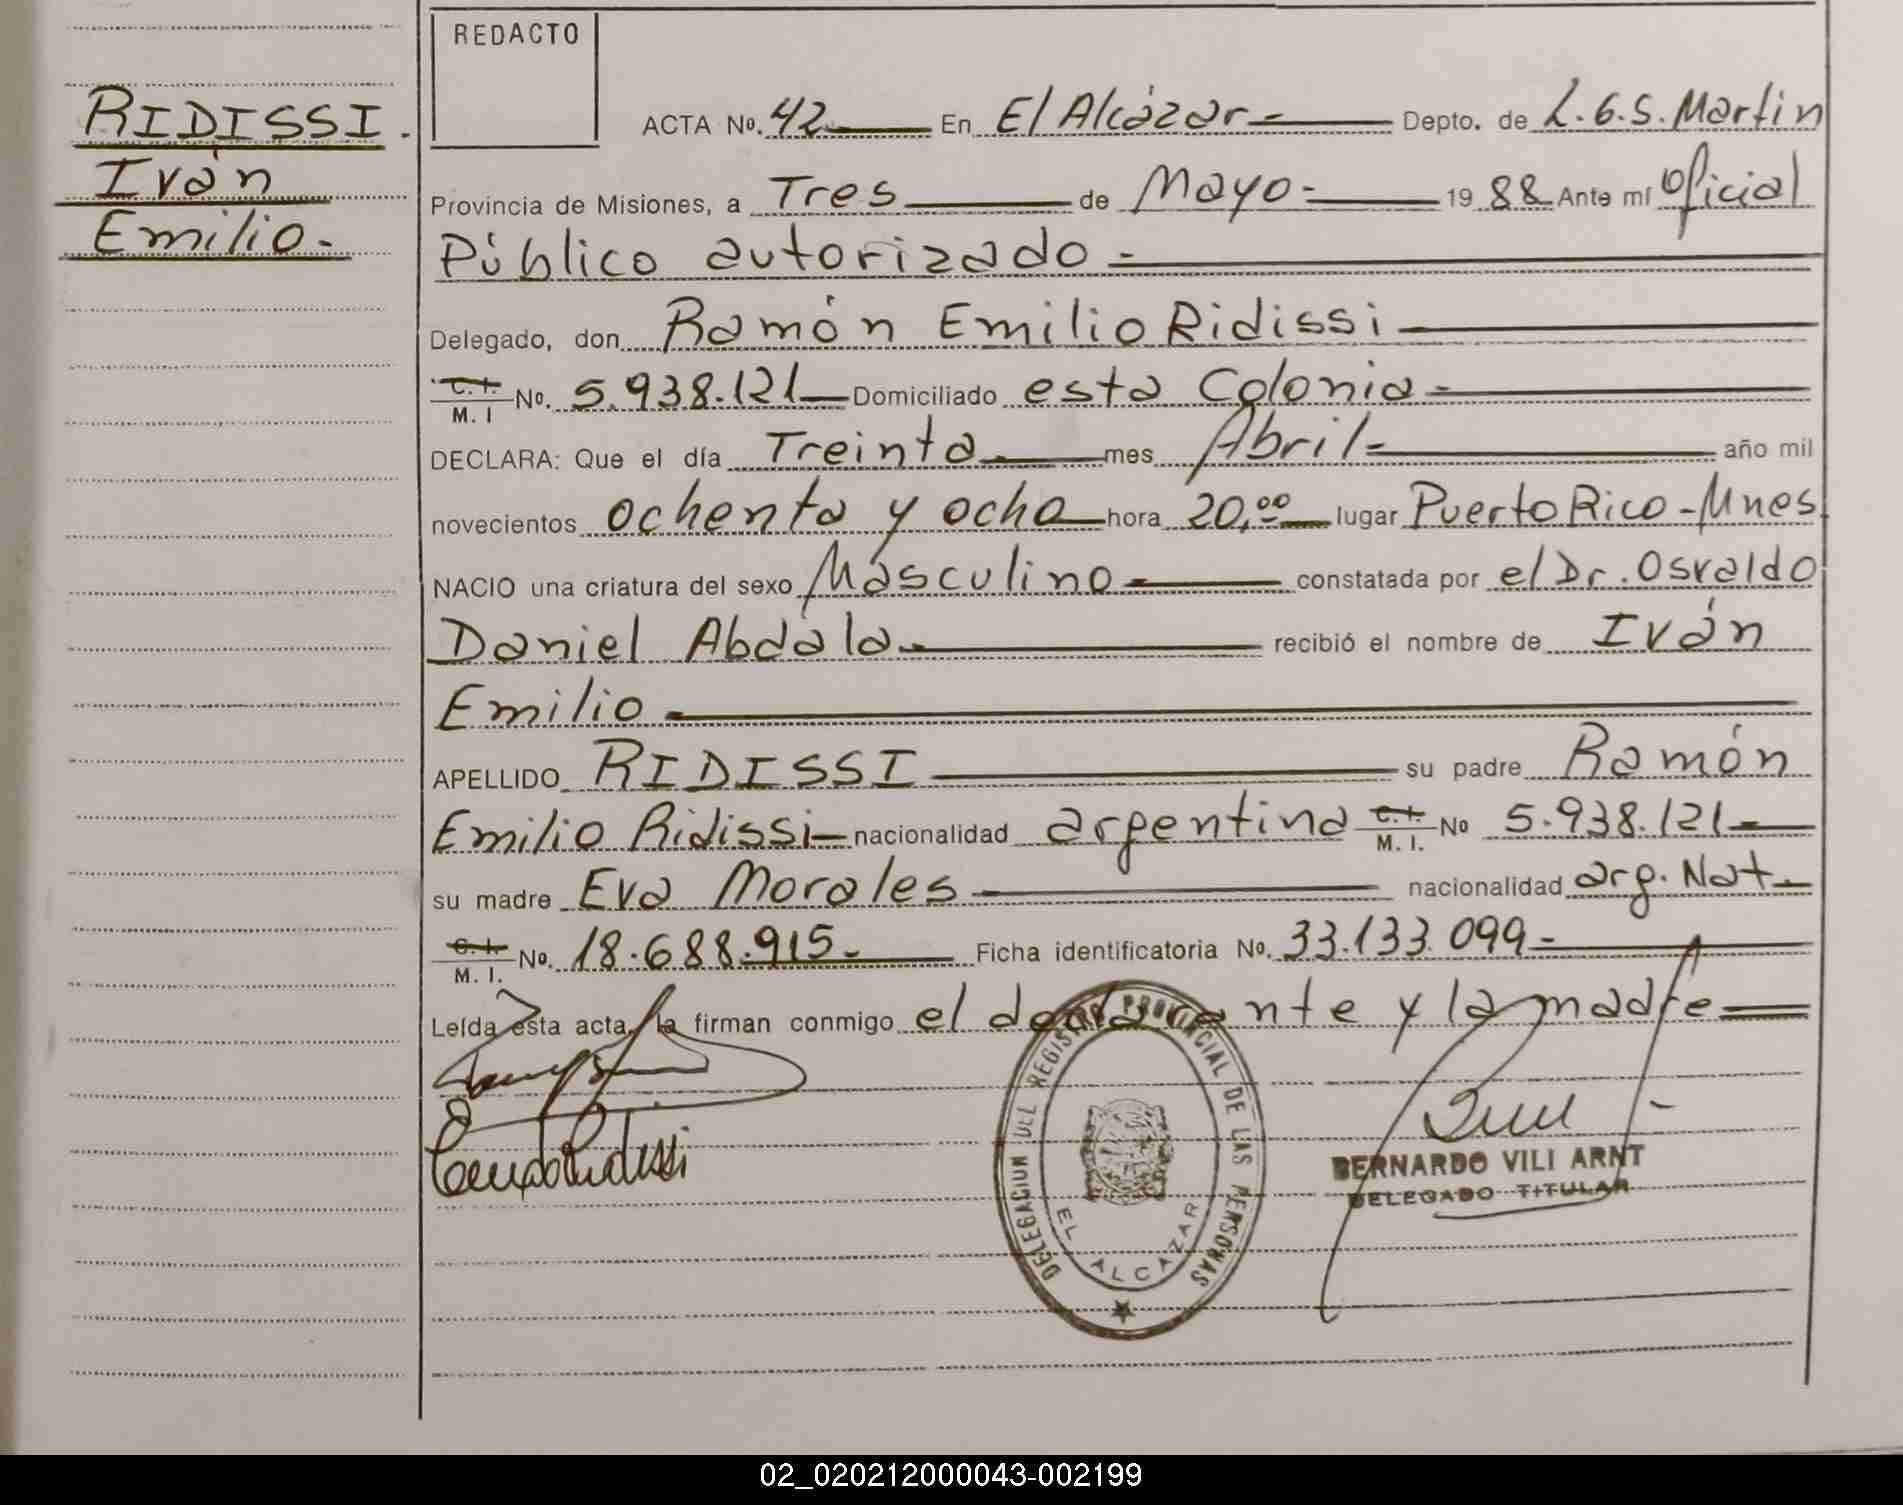 RIDISSI.
Iván
Emilio.-
REDACTO
ACTA Nº. 42 En El Alcázar.- Depto. de L.G.S. Martin
Provincia de Misiones, a Tres de Mayo.- 1988 Ante mí Oficial
Público autorizado.-
Delegado, don Ramón Emilio Ridissi
C.I. M. I Nº. 5.938.121 Domiciliado esta Colonia.-
DECLARA: Que el día Treinta mes Abril.- año mil
novecientos ochenta y ocho hora 20,00 lugar Puerto Rico-Mnes
NACIO una criatura del sexo Másculino.- constatada por el Dr. Osvaldo
Daniel Abdala.- recibió el nombre de Iván
Emilio.-
APELLIDO RIDISSI su padre Ramón
Emilio Ridissi nacionalidad argentina C.I. M. I. Nº 5.938.121.-
su madre Eva Morales nacionalidad arg. Nat.-
C.I. M. I. Nº. 18.688.915.- Ficha identificatoria Nº. 33.133.099.-
Leída esta acta, la firman conmigo el declarante y la madre
Ridissi
DELEGACION DEL REGISTRO PROVINCIAL DE LAS PERSONAS
EL ALCAZAR
BERNARDO VILI ARNT
DELEGADO TITULAR
02_020212000043-002199